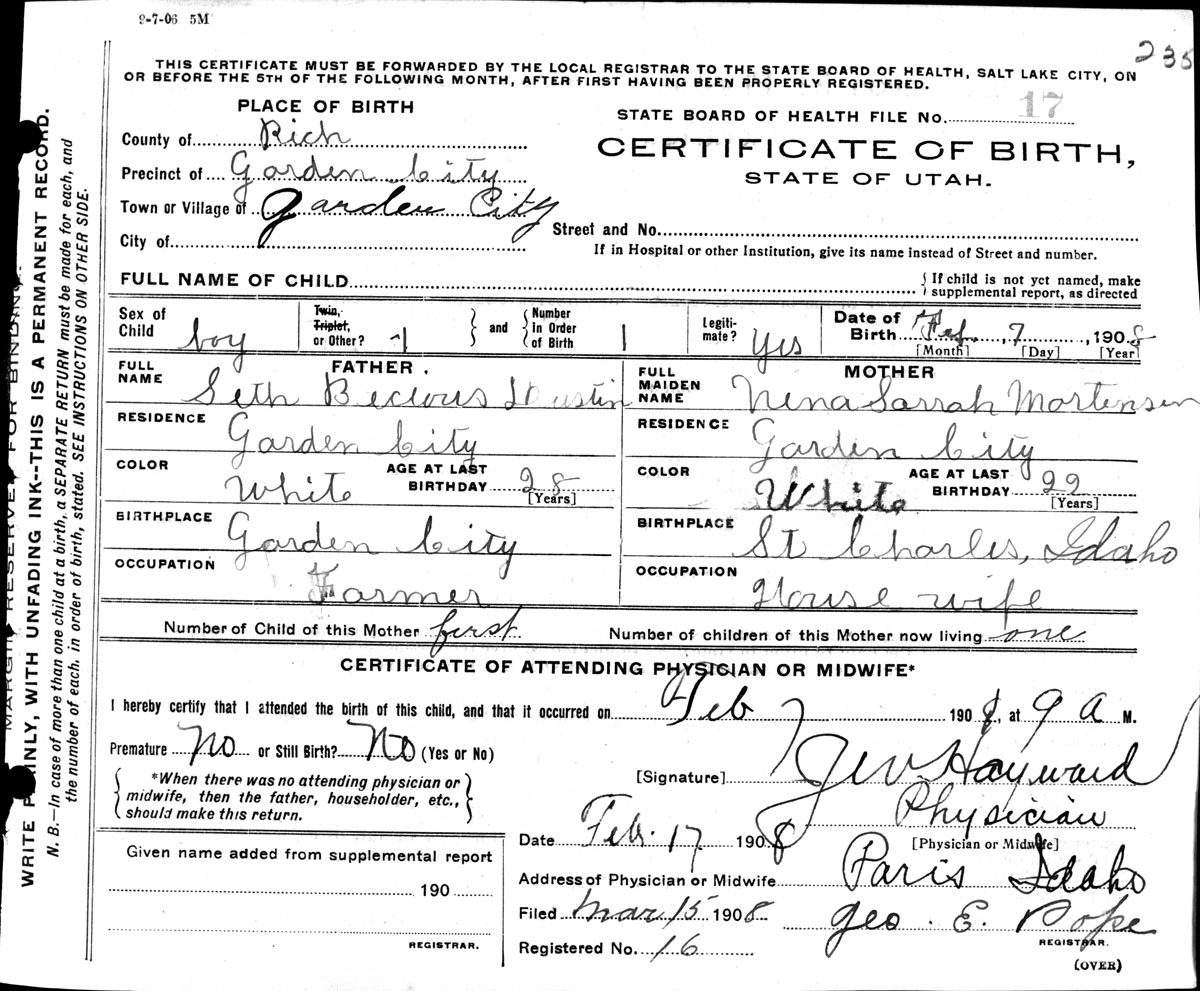 9-7-06 5M
235
THIS CERTIFICATE MUST BE FORWARDED BY THE LOCAL REGISTRAR TO THE STATE BOARD OF HEALTH, SALT LAKE CITY, ON
OR BEFORE THE 5TH OF THE FOLLOWING MONTH, AFTER FIRST HAVING BEEN PROPERLY REGISTERED.
PLACE OF BIRTH
STATE BOARD OF HEALTH FILE No. 17
County of Rich
CERTIFICATE OF BIRTH,
STATE OF UTAH.
Precinct of Garden City
Town or Village of Garden City
Street and No.
City of
If in Hospital or other Institution, give its name instead of Street and number.
FULL NAME OF CHILD
{ If child is not yet named, make
supplemental report, as directed
Sex of Child boy
Twin, Triplet, or Other? 1
and
Number In Order of Birth 1
Legiti-mate? Yes
Date of Birth Feb. 7, 1908
[Month] [Day] [Year]
FATHER.
MOTHER
FULL NAME Seth Dustin
FULL MAIDEN NAME Nena Sarrah Mortensen
RESIDENCE Garden City
RESIDENCE Garden City
COLOR White AGE AT LAST BIRTHDAY 28 [Years]
COLOR White AGE AT LAST BIRTHDAY 22 [Years]
BIRTHPLACE Garden City
BIRTHPLACE St Charles, Idaho
OCCUPATION Farmer
OCCUPATION House wife
Number of Child of this Mother first
Number of children of this Mother now living one
CERTIFICATE OF ATTENDING PHYSICIAN OR MIDWIFE*
I hereby certify that I attended the birth of this child, and that it occurred on Feb 7 1908, at 9 A M.
Premature No or Still Birth? No (Yes or No)
{ *When there was no attending physician or
midwife, then the father, householder, etc.,
should make this return. }
[Signature] Hayward
Physician
[Physician or Midwife]
Date Feb. 17 1908
Given name added from supplemental report
190
REGISTRAR.
Address of Physician or Midwife Paris Idaho
Filed Mar 15 1908 Geo. E. Pope
REGISTRAR.
Registered No. 16
(OVER)
MARGIN RESERVED FOR BINDING.
WRITE PLAINLY, WITH UNFADING INK--THIS IS A PERMANENT RECORD.
N. B.—In case of more than one child at a birth, a SEPARATE RETURN must be made for each, and
the number of each, in order of birth, stated. SEE INSTRUCTIONS ON OTHER SIDE.